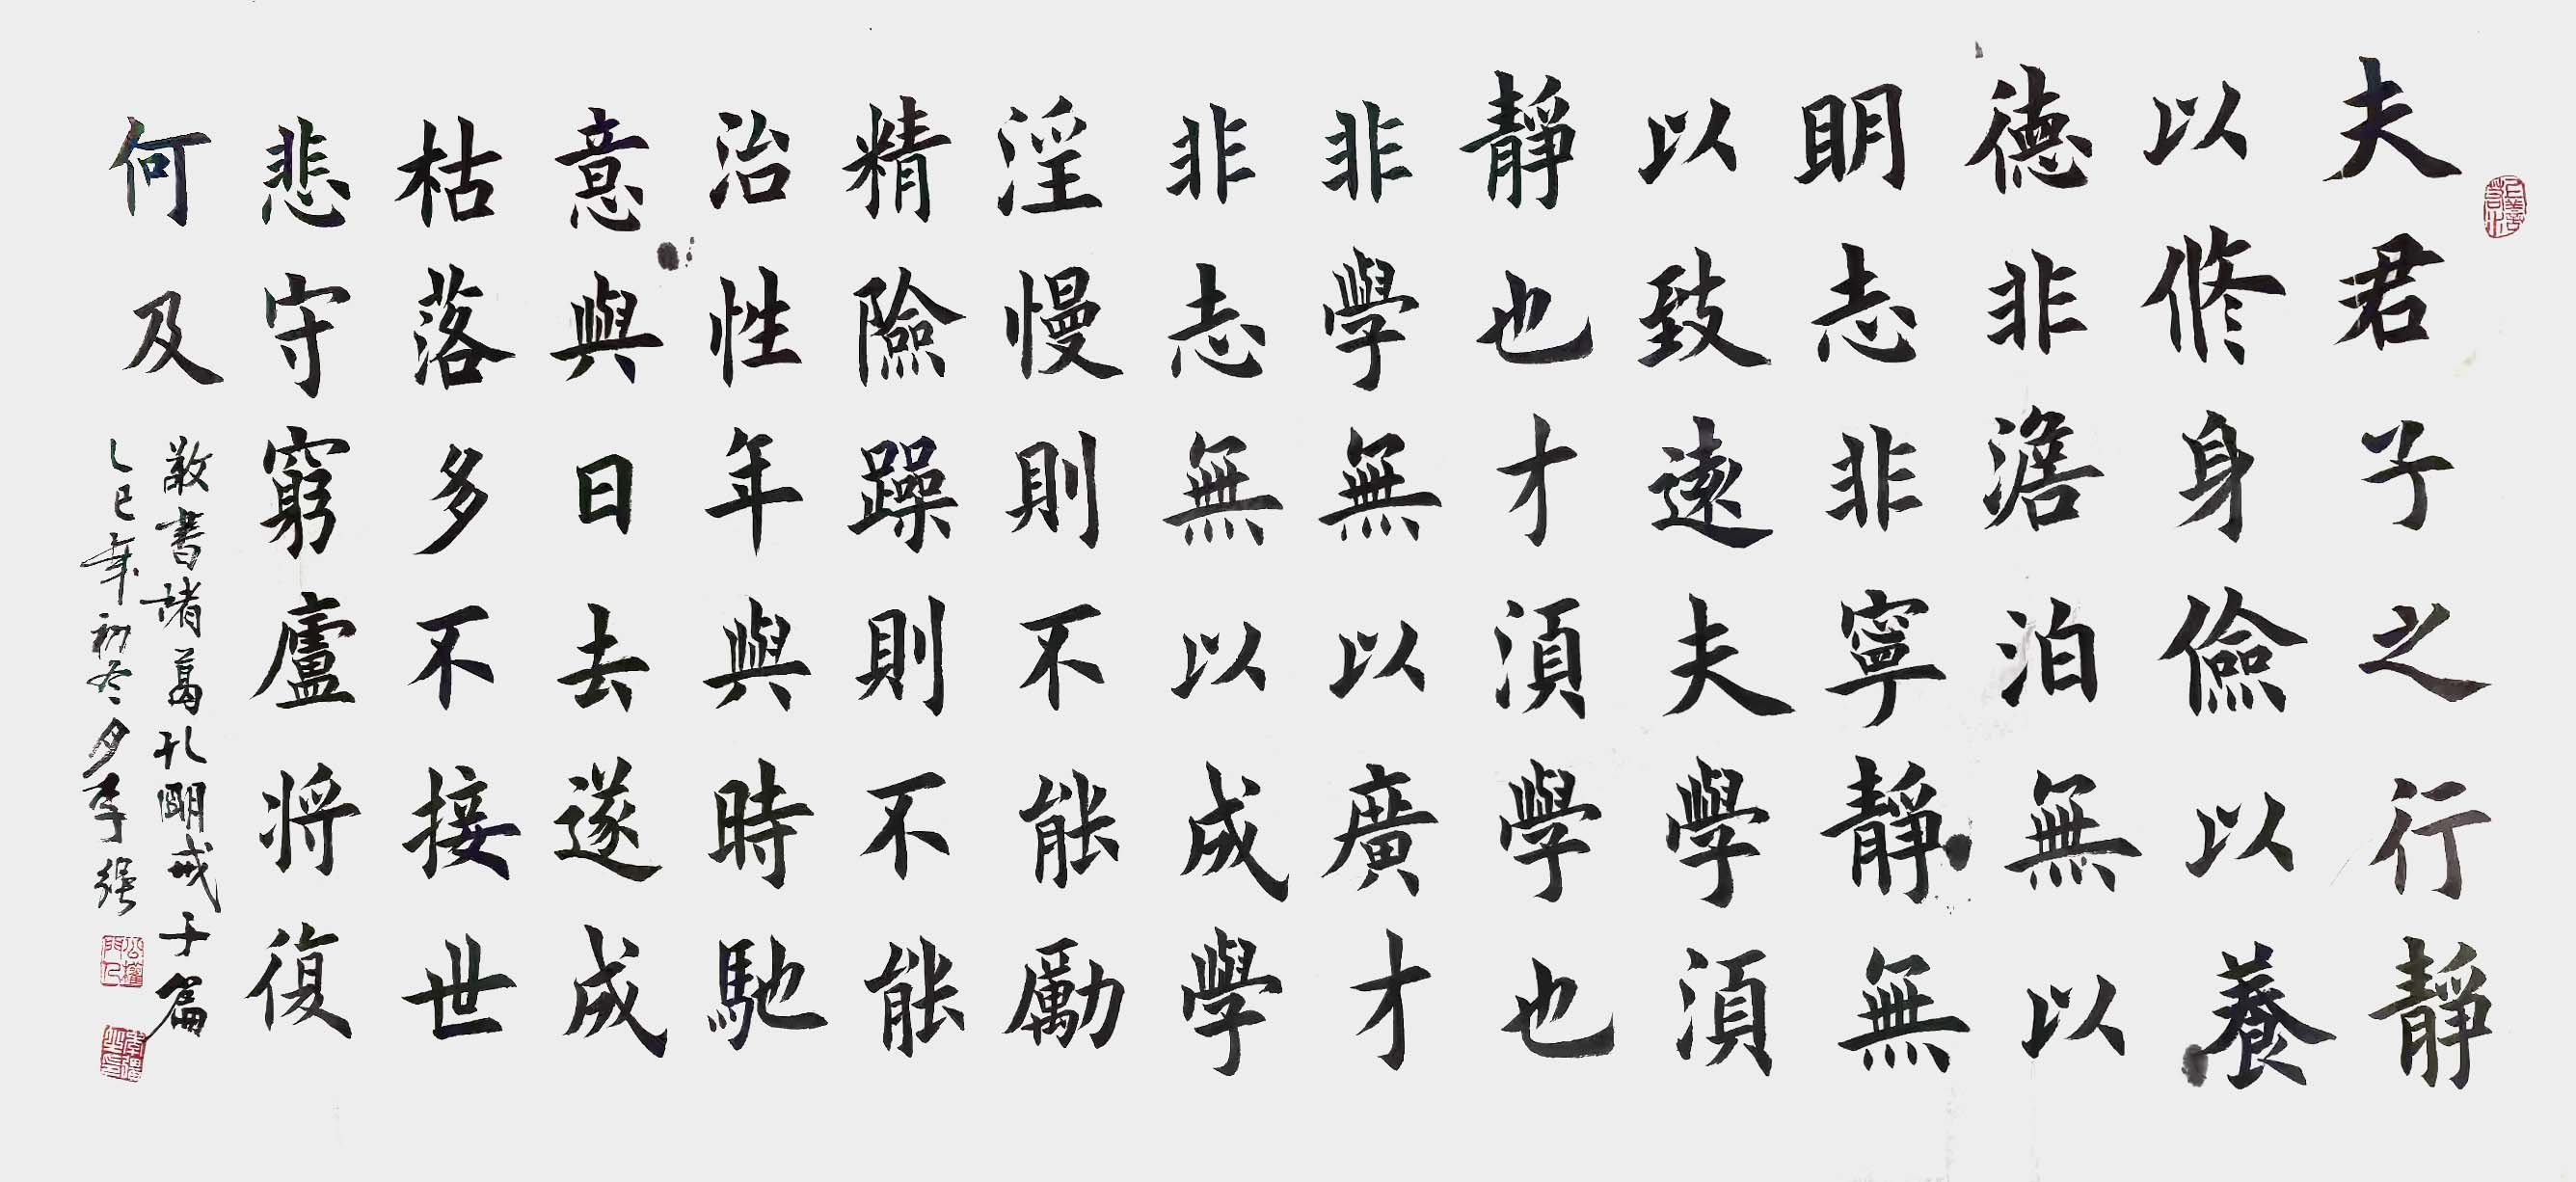 上善若水
夫君子之行靜
以修身儉以養
德非澹泊無以
明志非寧靜無
以致遠夫學須
靜也才須學也
非學無以廣才
非志無以成學
淫慢則不能勵
精險躁則不能
治性年與時馳
意與日去遂成
枯落多不接世
悲守窮廬将復
何及
敬書諸葛孔明戒子篇
乙巳年初冬夕李强
公權門人